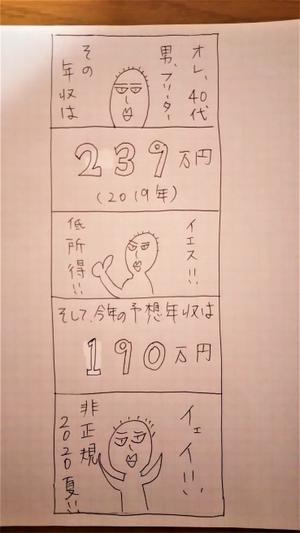 オレ、40代
男、フリーター
その
年収は
239万円
(2019年)
イエス!!
低所得!!
そして、今年の予想年収は
190万円
イェイ!!
非正規
2020夏!!